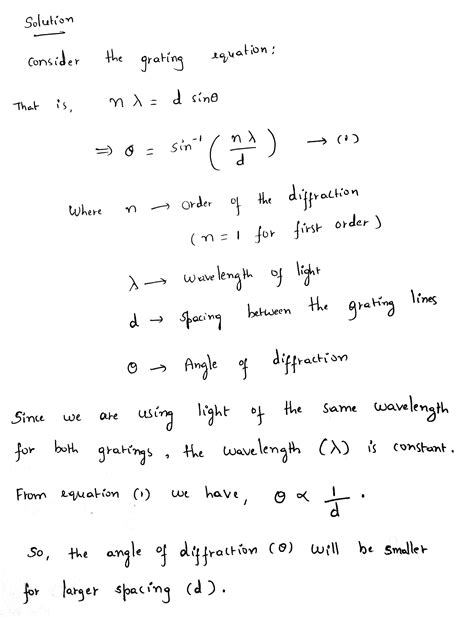 Solution
Consider the grating equation:
That is, nλ = d sinθ
⇒ θ = sin⁻¹ (nλ/d) → (1)
Where n → order of the diffraction
(n = 1 for first order)
λ → wavelength of light
d → spacing between the grating lines
θ → Angle of diffraction
Since we are using light of the same wavelength
for both gratings, the wavelength (λ) is constant.
From equation (1) we have, θ ∝ 1/d .
So, the angle of diffraction (θ) will be smaller
for larger spacing (d).